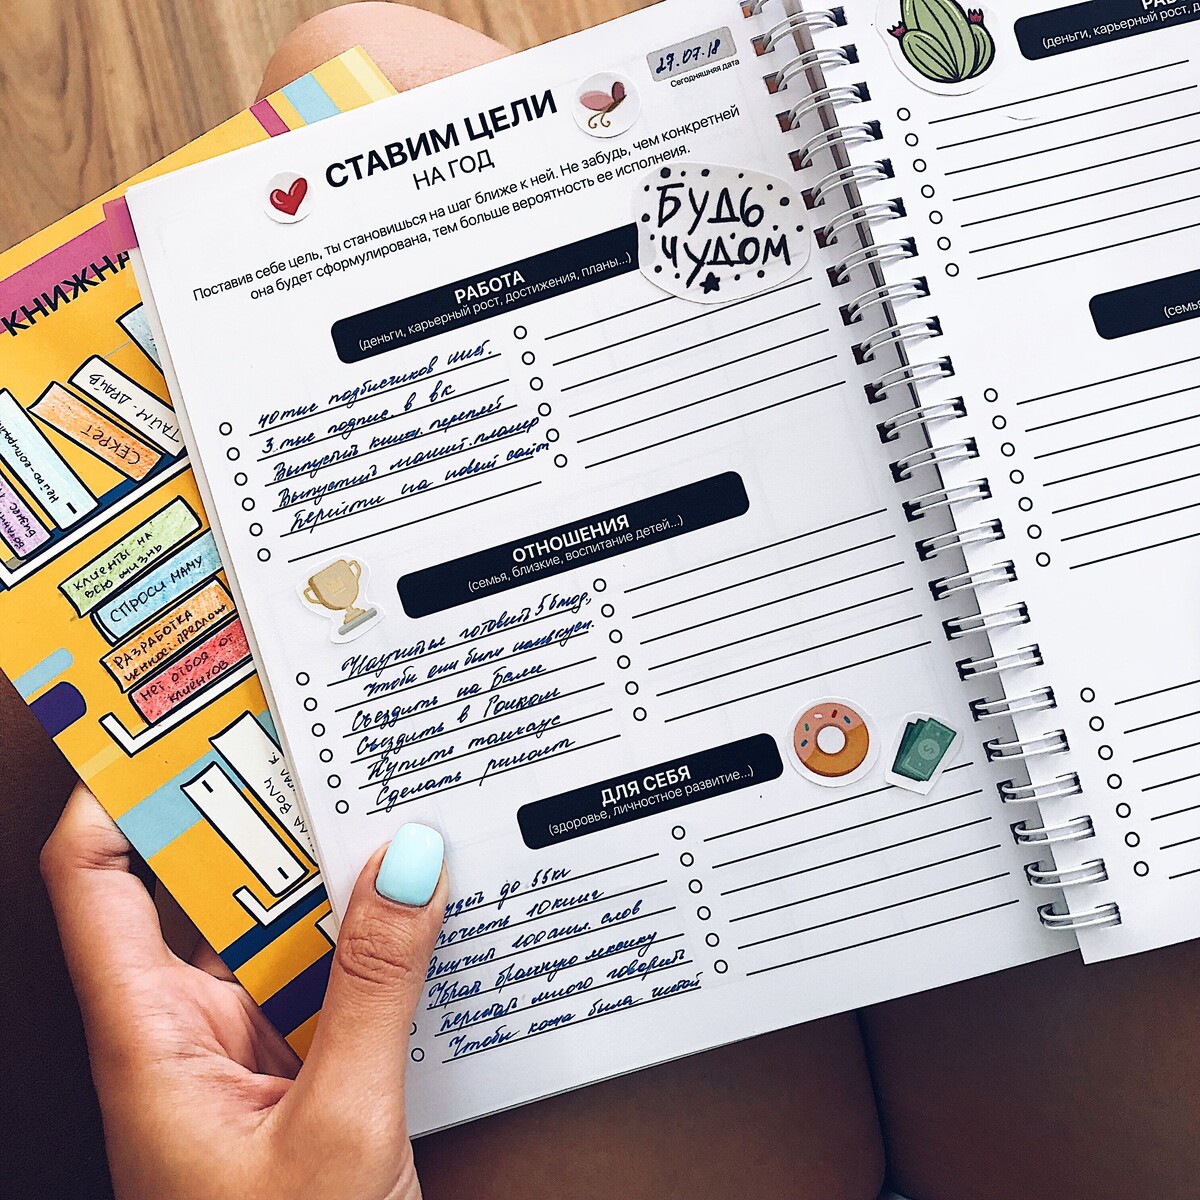 27.07.18
Сегодняшняя дата
СТАВИМ ЦЕЛИ
НА ГОД
Поставив себе цель, ты становишься на шаг ближе к ней. Не забудь, чем конкретней
она будет сформулирована, тем больше вероятность ее исполнеия.
БУДЬ
ЧУДОМ
РАБОТА
(деньги, карьерный рост, достижения, планы...)
40 тыс подписчиков инст.
3 тыс подпис. в вк
Выпустить книгу. переплёт
Выпустить планер
Перейти на новый сайт
ОТНОШЕНИЯ
(семья, близкие, воспитание детей...)
Научиться готовить 5 блюд,
чтоби они были
Съездить на Бали
Съездить в
Купить таунхаус
Сделать ремонт
ДЛЯ СЕБЯ
(здоровье, личностное развитие...)
до 55 кг
10 книг
Выучить 100 англ. слов
Убрать бранную лексику
Перестать много говорить
Чтобы кожа была чистой
КНИЖНА
ТАЙМ-ДРАЙВ
СЕКРЕТ
КЛИЕНТЫ НА
ВСЮ ЖИЗНЬ
СПРОСИ МАМУ
РАЗРАБОТКА
ЦЕННОСТ. ПРЕДЛОЖ
НЕТ ОТБОЯ ОТ
КЛИЕНТОВ
(деньги, карьерный рост, д
(семья